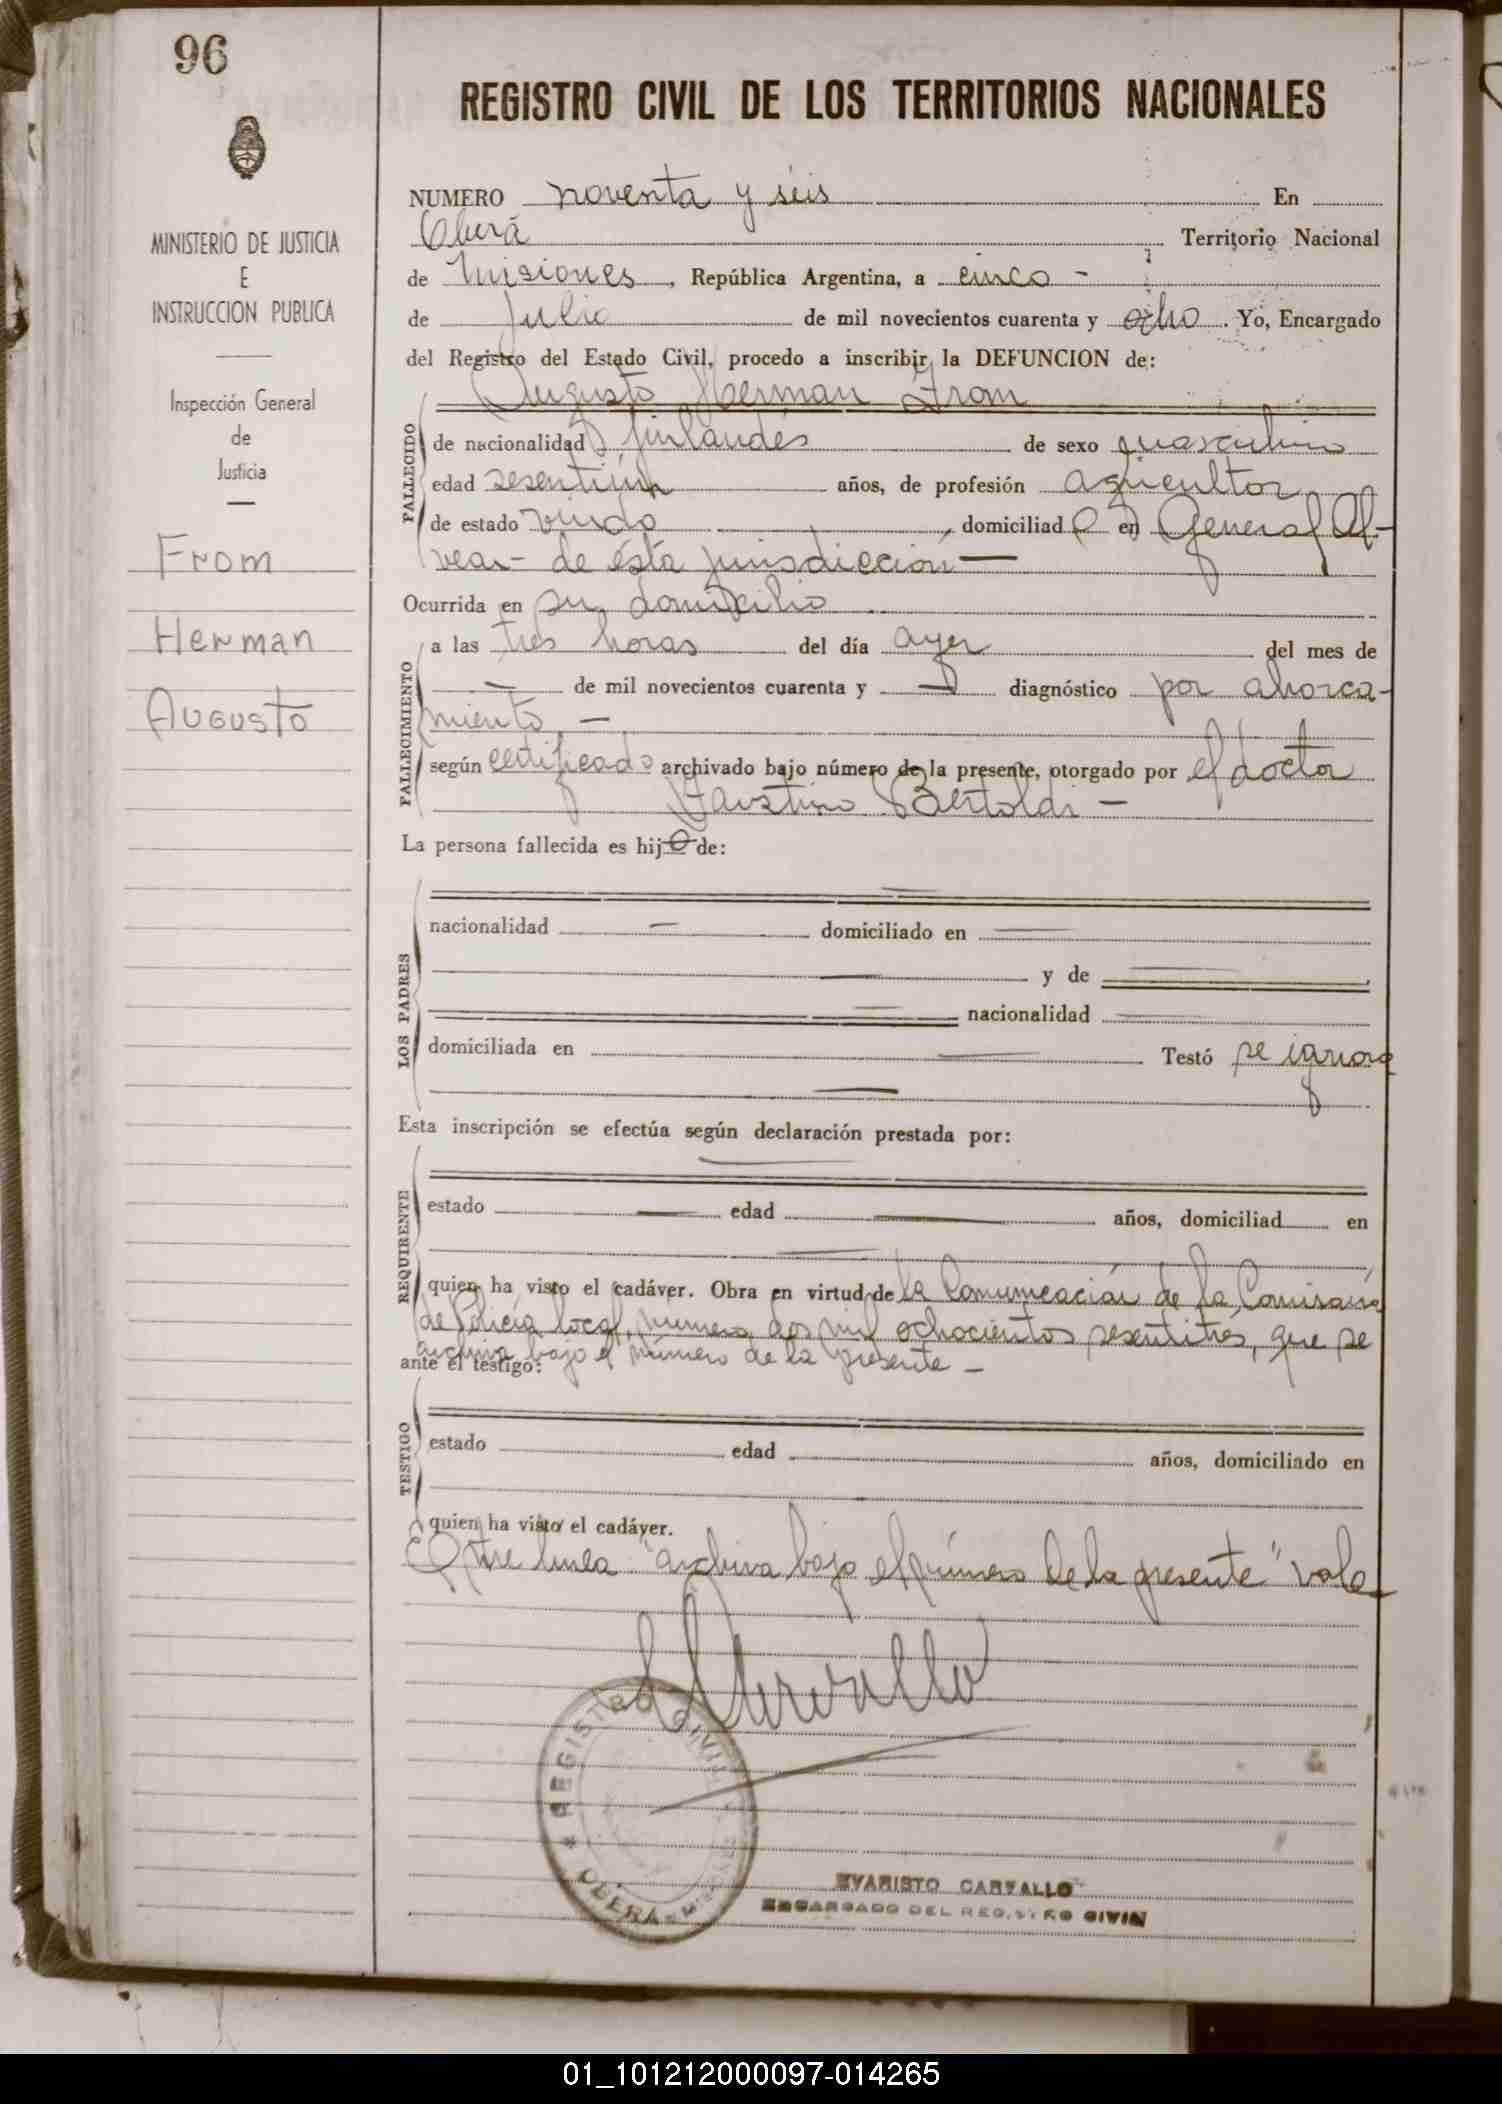 96
MINISTERIO DE JUSTICIA
E
INSTRUCCION PUBLICA
Inspección General
de
Justicia
From
Herman
Augusto
REGISTRO CIVIL DE LOS TERRITORIOS NACIONALES
NUMERO noventa y seis En
Oberá Territorio Nacional
de Misiones, República Argentina, a cinco -
de Julio de mil novecientos cuarenta y ocho. Yo, Encargado
del Registro del Estado Civil, procedo a inscribir la DEFUNCION de:
Augusto Herman From
FALLECIDO
de nacionalidad finlandés de sexo masculino
edad sesentiún años, de profesión agricultor
de estado viudo, domiciliado en General Al-
vear - de ésta jurisdiccion —
Ocurrida en su domicilio
FALLECIMIENTO
a las tres horas del día ayer del mes de
— de mil novecientos cuarenta y — diagnóstico por ahorca-
miento —
según certificado archivado bajo número de la presente, otorgado por el doctor
Faustino Bertoldi —
La persona fallecida es hijo de:
LOS PADRES
nacionalidad — domiciliado en —
— y de —
— nacionalidad —
domiciliada en — Testó se ignora
Esta inscripción se efectúa según declaración prestada por:
REQUIRENTE
estado — edad — años, domiciliad en
quien ha visto el cadáver. Obra en virtud de la Comunicación de la Comisaría
de Policía local, número dos mil ochocientos sesentitrés, que se
archiva bajo el número de la presente —
ante el testigo:
TESTIGO
estado edad años, domiciliado en
quien ha visto el cadáver.
Entre linea "archiva bajo el número de la presente" vale
REGISTRO CIVIL
OBERA
EVARISTO CARVALLO
ENCARGADO DEL REGISTRO CIVIL
01_101212000097-014265